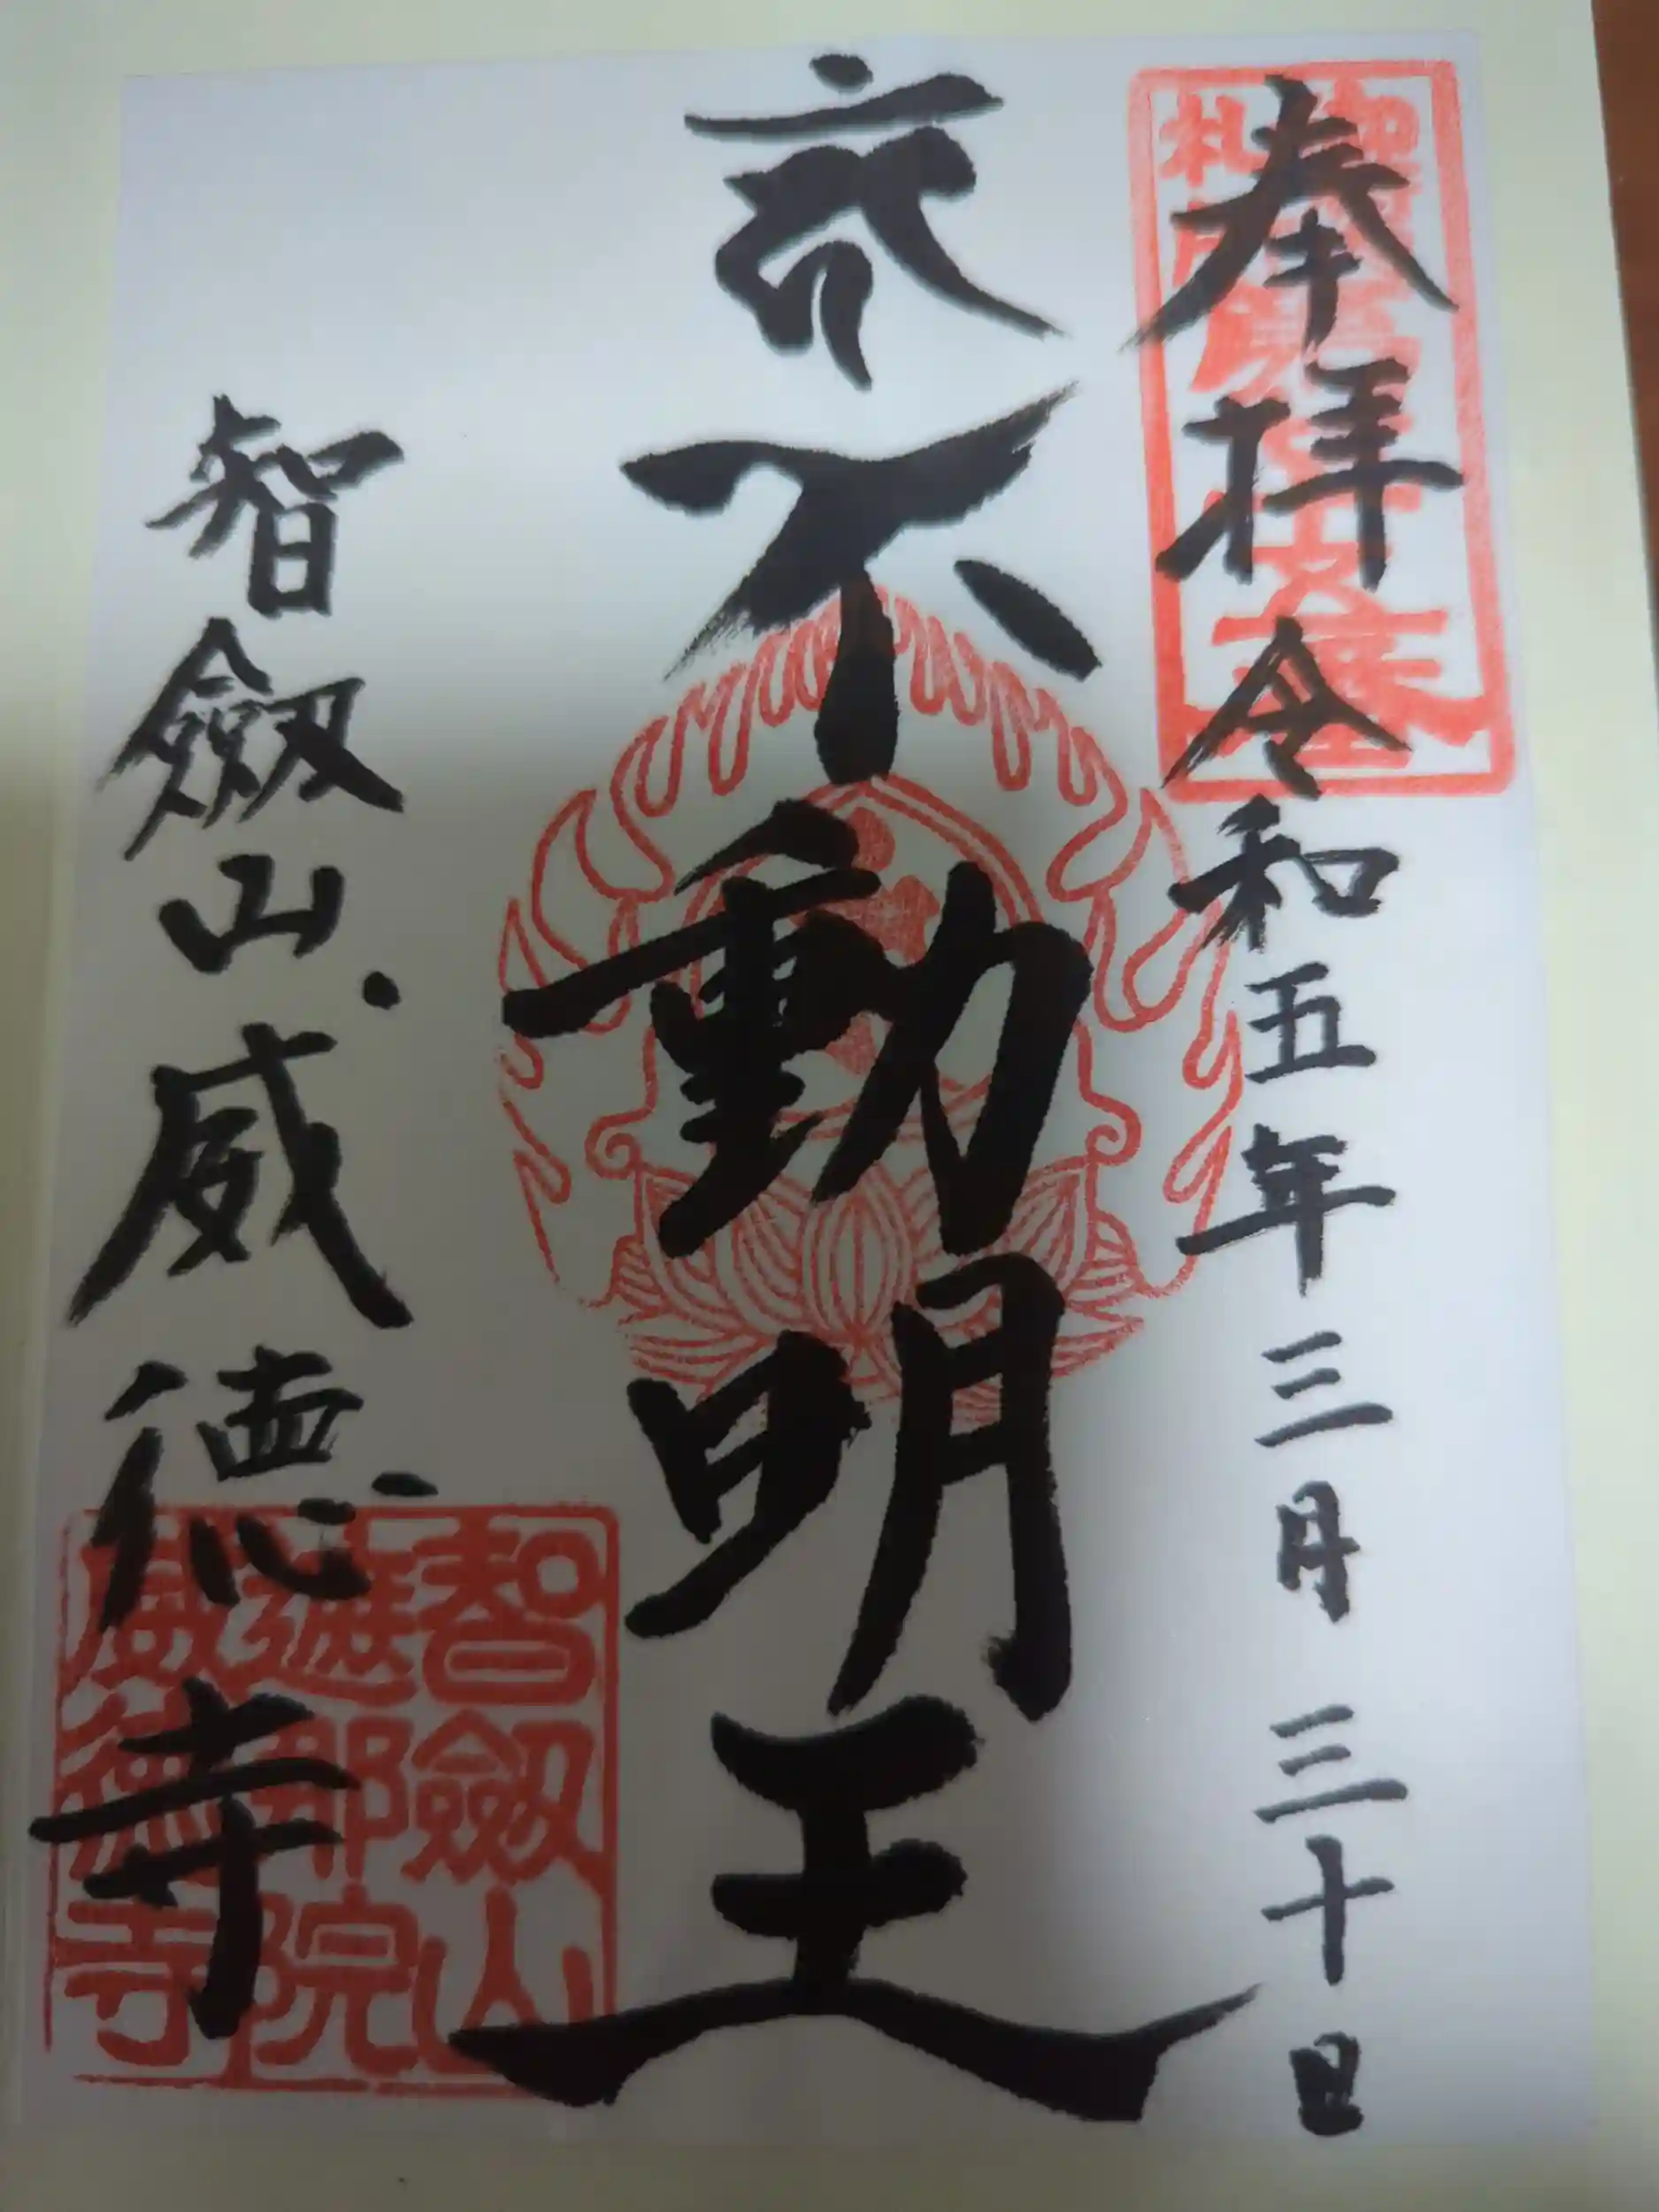 奉拝 令和五年三月三十日
不動明王
智劔山 威徳寺
智劔山
遮那院
威徳寺